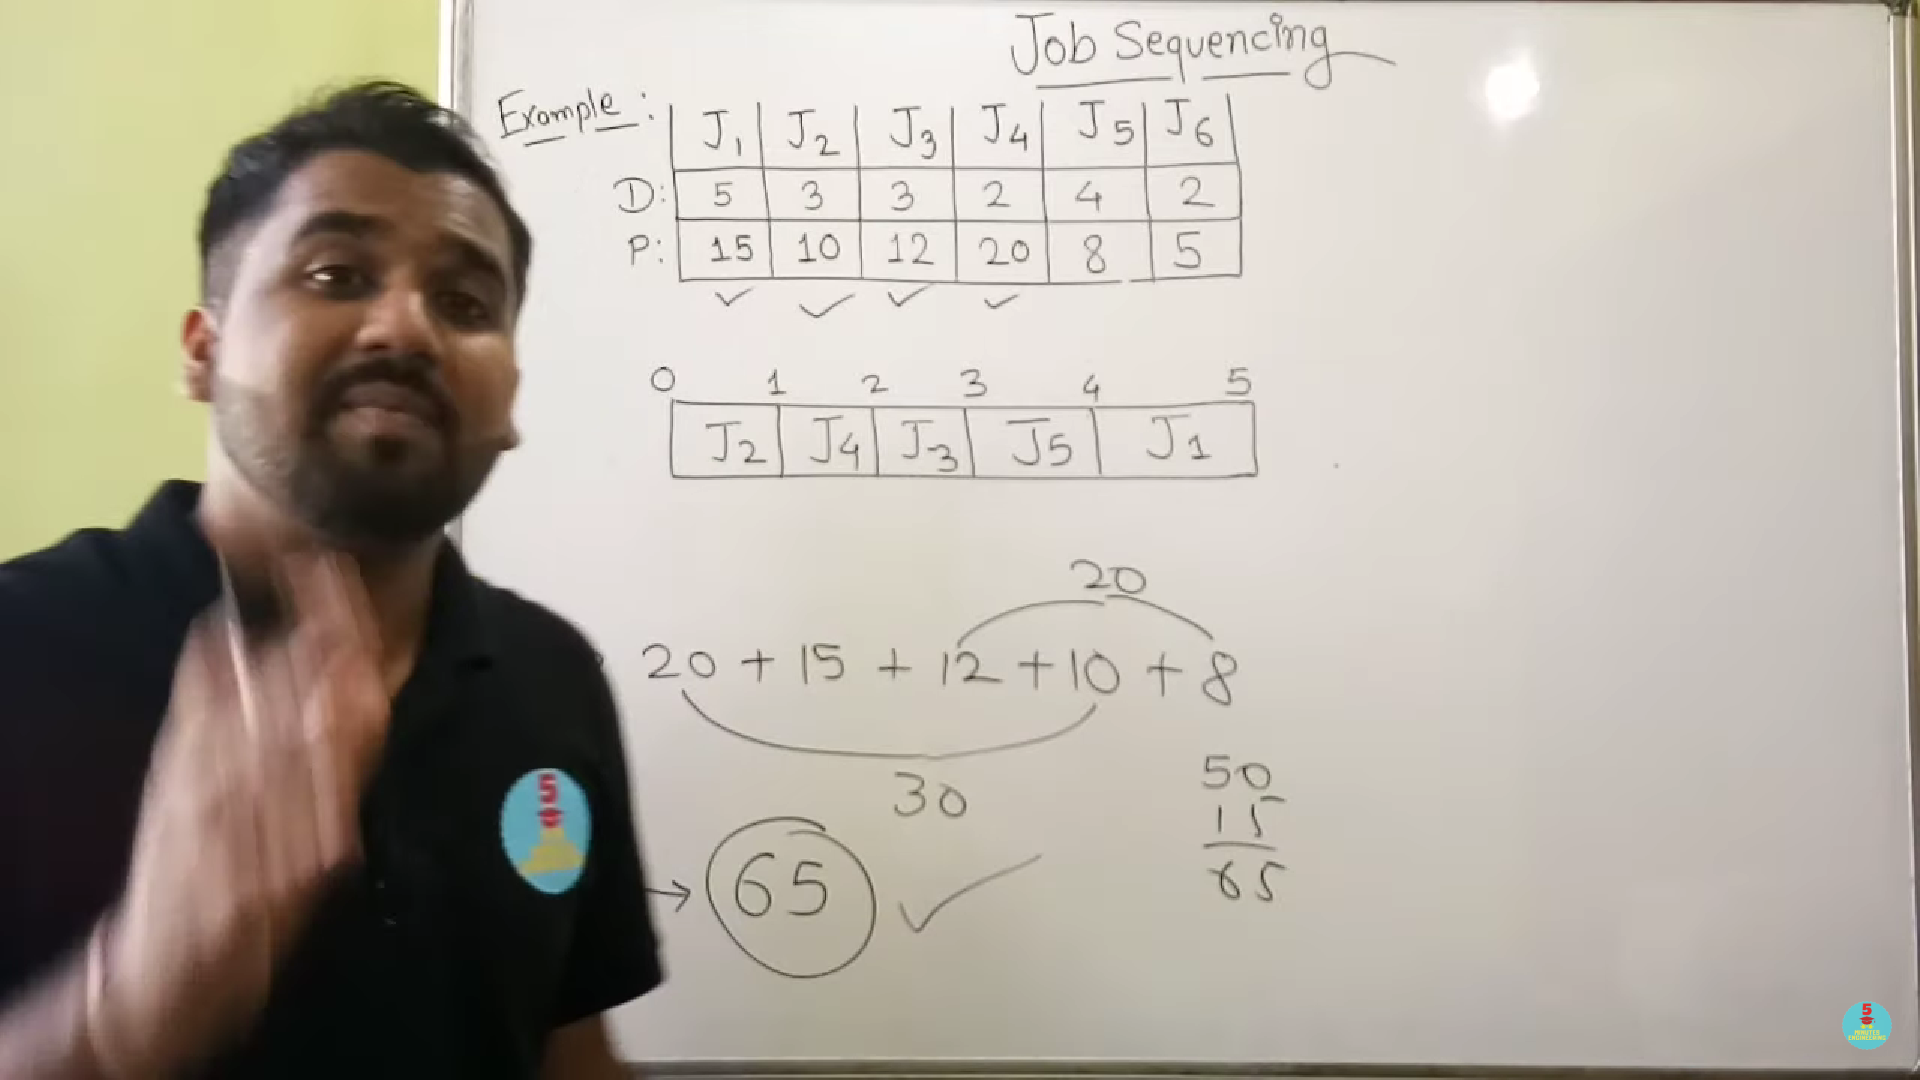 Job Sequencing
Example : J1 J2 J3 J4 J5 J6
D: 5 3 3 2 4 2
P: 15 10 12 20 8 5
0 1 2 3 4 5
J2 J4 J3 J5 J1
20
20 + 15 + 12 + 10 + 8
30
50
15
65
→ 65
5
5
MINUTES
ENGINEERING